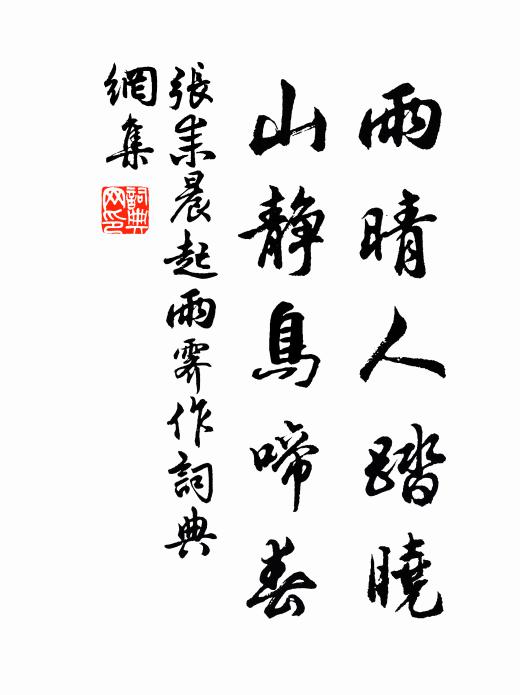 雨晴人踏曉
山靜鳥啼春
張耒晨起雨霽作詞典
網集
詞典網印